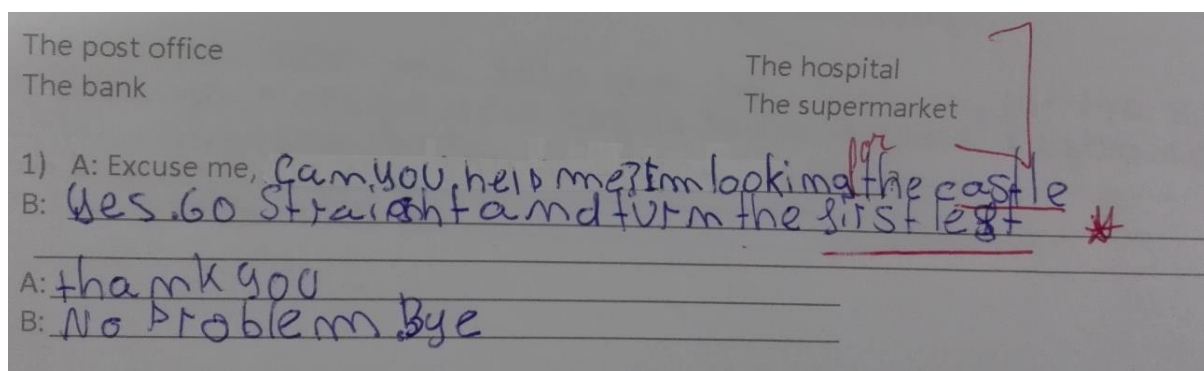 The post office
The bank
The hospital
The supermarket
1) A: Excuse me, Can you, help me? Im looking for the castle
B: Yes. Go straight and turn the first left
A: thank you
B: No problem. Bye